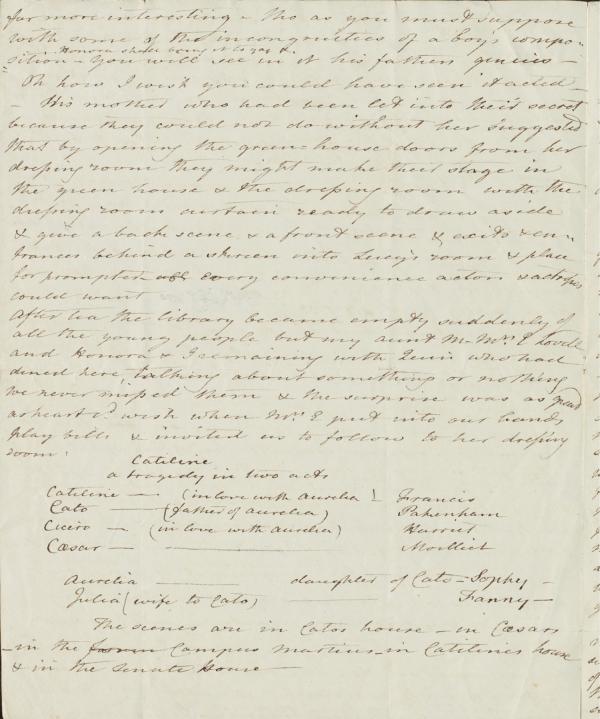 far more interesting - tho as you must suppose
with some of the incongruities of a boy's compo-
Honora shake being it to say &
sition - You will see in it his fathers genius -
Oh how I wish you could have seen it acted -
- His mother who had been let into their secret
because they could not do without her suggested
that by opening the green-house doors from her
dressing room they might make their stage in
the green house & the dressing room with the
dressing room curtain ready to draw aside
& give a back scene & a front scene & exits & en-
trances behind a skreen into Lucy's room & place
for prompter every convenience actors & actresses
could want
After tea the library became empty suddenly of
all the young people but my aunt M- Mrs E Lovell
and Honora & I remaining with Quin who had
dined here, talking about something or nothing
we never missed them & the surprise was as great
as heart cd. wish when Mrs E put into our hands
play bills & invited us to follow to her dressing
room.
Catiline
a tragedy in two acts
Catiline — (in love with aurelia) Francis
Cato — (father of aurelia) Pakenham
Cicero — (in love with aurelia) Harriet
Cæsar — Moilliet
Aurelia — daughter of Cato - Sophy -
Julia (wife to Cato) — Fanny -
The scenes are in Catos house - in Cæsars
- in the Campus Martius - in Catilines house
& in the Senate House -